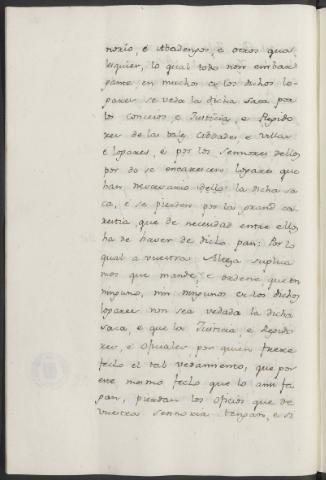 norio, é Abadengos, e otros qua
lesquier, lo qual todo non embar
gante, en muchos de los dichos lo-
gares se veda la dicha saca por
los Conceios e Justicia, e Regido
res de las tales Cibdades e Villas
e logares, e por los Sennores dellos
por do se encarescen logares que
han necesario dello la dicha sa
ca, é se pierden por la grand ca
restia, que de necesidad entre ellos
ha de haver de dicho pan: Por lo
qual a vuestra Alteza suplica
mos que mande, e ordene que en
ninguno, nin ningunos de los dichos
logares non sea vedada la dicha
saca, e que la Justicia, e Regido
res, e Oficiales, por quien fuere
fecho el tal vedamiento, que por
ese mesmo fecho que lo ansi fa
gan, pierdan los oficios que de
vuestra Sennoria tengan, e si